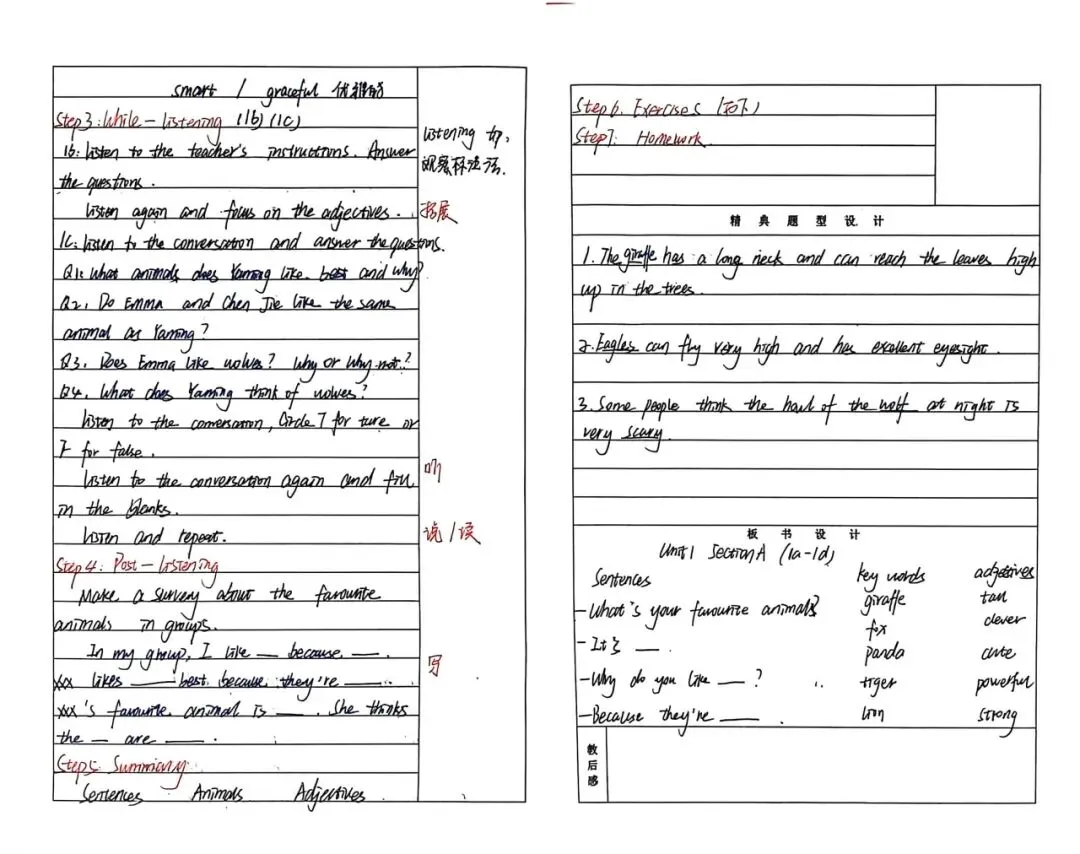 smart / graceful 优雅的
Step3: While-listening (1b) (1c)
1b: listen to the teacher's instructions. Answer
the questions.
listen again and focus on the adjectives.
1C: listen to the conversation and answer the questions.
Q1: What animals does Yaming like best and why?
Q2. Do Emma and Chen Jie like the same
animal as Yaming?
Q3. Does Emma like wolves? Why or Why not?
Q4. What does Yaming think of wolves?
listen to the conversation, Circle T for ture or
F for false.
listen to the conversation again and fill
in the blanks.
listen and repeat.
Step 4: Post-listening
Make a survey about the favourite
animals in groups.
In my group, I like — because —.
xx likes — best because they're —.
xxx's favourite animal is —. She thinks
the — are —.
Step5: Summary
Sentences Animals Adjectives
listening 前,
观察标注法.
拓展
听
说/读
写
Step 6. Exercises (如下)
Step7: Homework.
精典题型设计
1. The giraffe has a long neck and can reach the leaves high
up in the trees.
2. Eagles can fly very high and has excellent eyesight.
3. Some people think the howl of the wolf at night is
very scary.
板书设计
Unit1 Section A (1a-1d)
Sentences key words adjectives
-What's your favourite animal? giraffe tall
fox clever
-It's —. panda cute
-Why do you like —? tiger powerful
-Because they're —. lion strong
教后感